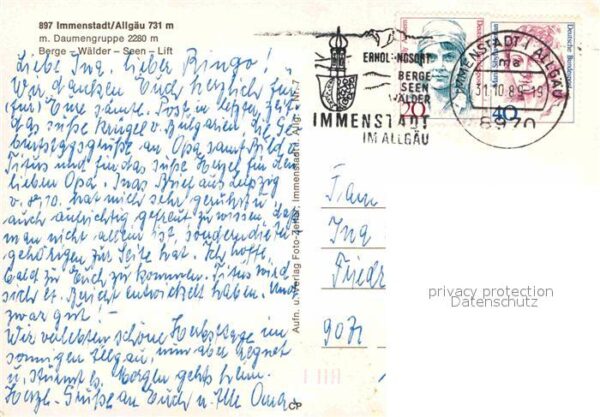 897 Immenstadt/Allgäu 731 m
m. Daumengruppe 2280 m
Berge – Wälder – Seen – Lift
Liebe Ina, lieber Ringo!
Wir danken Euch herzlich für
(für) Eure sämtl. Post in letzter Zeit
das süße Krügel v. Bulgarien, die Ge-
burtstagsgrüße an Opa samt Bild v.
Titus und für das süße Herzel für den
lieben Opa. Inas Brief aus Leipzig
v. 10. hat mich sehr gerührt u
auch aufrichtig gefreut zu wissen, daß
man nicht allein ist, sondern die
gehörigen zur Seite hat. Ich hoffe,
bald zu Euch zu kommen. Titus wird
sich et. entwickelt haben. Und
zwar gut!
Wir verlebten schöne Herbsttage im
sonnigen Allgäu, nun aber regnet
u. stürmt es. Morgen gehts heim.
Herzl. Grüße an Euch u. Alle Oma
Aufn. u. Verlag Foto-Zeller, Immenstadt i. Allg. - Nr.
CP
ERHOLUNGSORT
BERGE
SEEN
WÄLDER
IMMENSTADT
IM ALLGÄU
IMMENSTADT I ALLGÄU
ma
31.10.8 -19
8970
20
40
Deutsche Bundespost
Fam
Ing
Friedr
90
privacy protection
Datenschutz